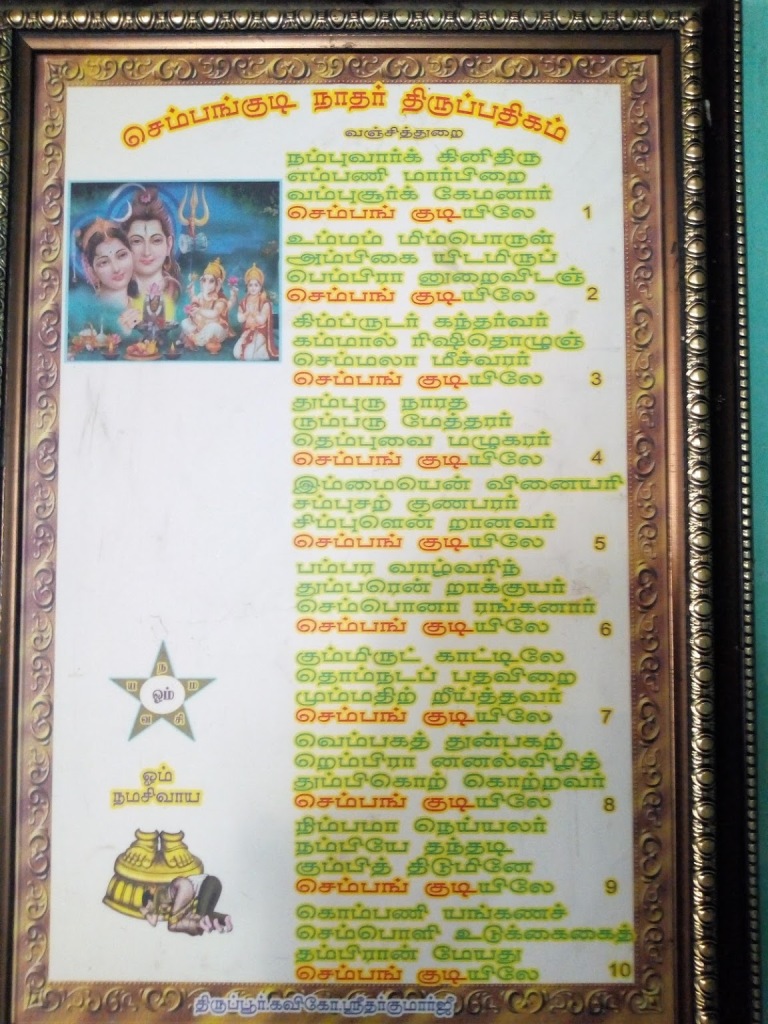 செம்பங்குடி நாதர் திருப்பதிகம்
வஞ்சித்துறை
நம்புவார்க் கினிதிரு
எம்பணி மார்பிறை
வம்புசூர்க் கேமனார்
செம்பங் குடியிலே 1
உம்மம் மிம்பொருள்
அம்பிகை யிடமிருப்
பெம்பிரா னுறைவிடஞ்
செம்பங் குடியிலே 2
கிம்ப்ருடர் கந்தர்வர்
கம்மால் ரிஷிதொழுஞ்
செம்மலா மீச்வார்
செம்பங் குடியிலே 3
தும்புரு நாரத
ரும்பரு மேத்தரர்
தெம்புவை மழுகரர்
செம்பங் குடியிலே 4
இம்மையென் வினையரி
சம்புசற் குணபரர்
சிம்புளென் றானவர்
செம்பங் குடியிலே 5
பம்பர வாழ்வரிந்
தும்பரென் றாக்குயர்
செம்பொனா ரங்கனார்
செம்பங் குடியிலே 6
கும்மிருட் காட்டிலே
தொம்நடப் பதவிறை
மும்மதிற் றிய்த்தவர்
செம்பங் குடியிலே 7
வெம்பகத் துன்பகற்
றெம்பிரா னனல்விழித்
தும்பிகொற் கொற்றவர்
செம்பங் குடியிலே 8
நிம்பமா நெய்யலர்
நம்பியே தந்தடி
கும்பித் திடுமினே
செம்பங் குடியிலே 9
கொம்பணி யங்கணச்
செம்பொளி உடுக்கைகைத்
தம்பிரான் மேயது
செம்பங் குடியிலே 10
ந
ய ம
ஓம்
வ சி
ஓம்
நமசிவாய
திருப்பூர்.கவிகோ.ஸ்ரீதர்குமார்ஜீ